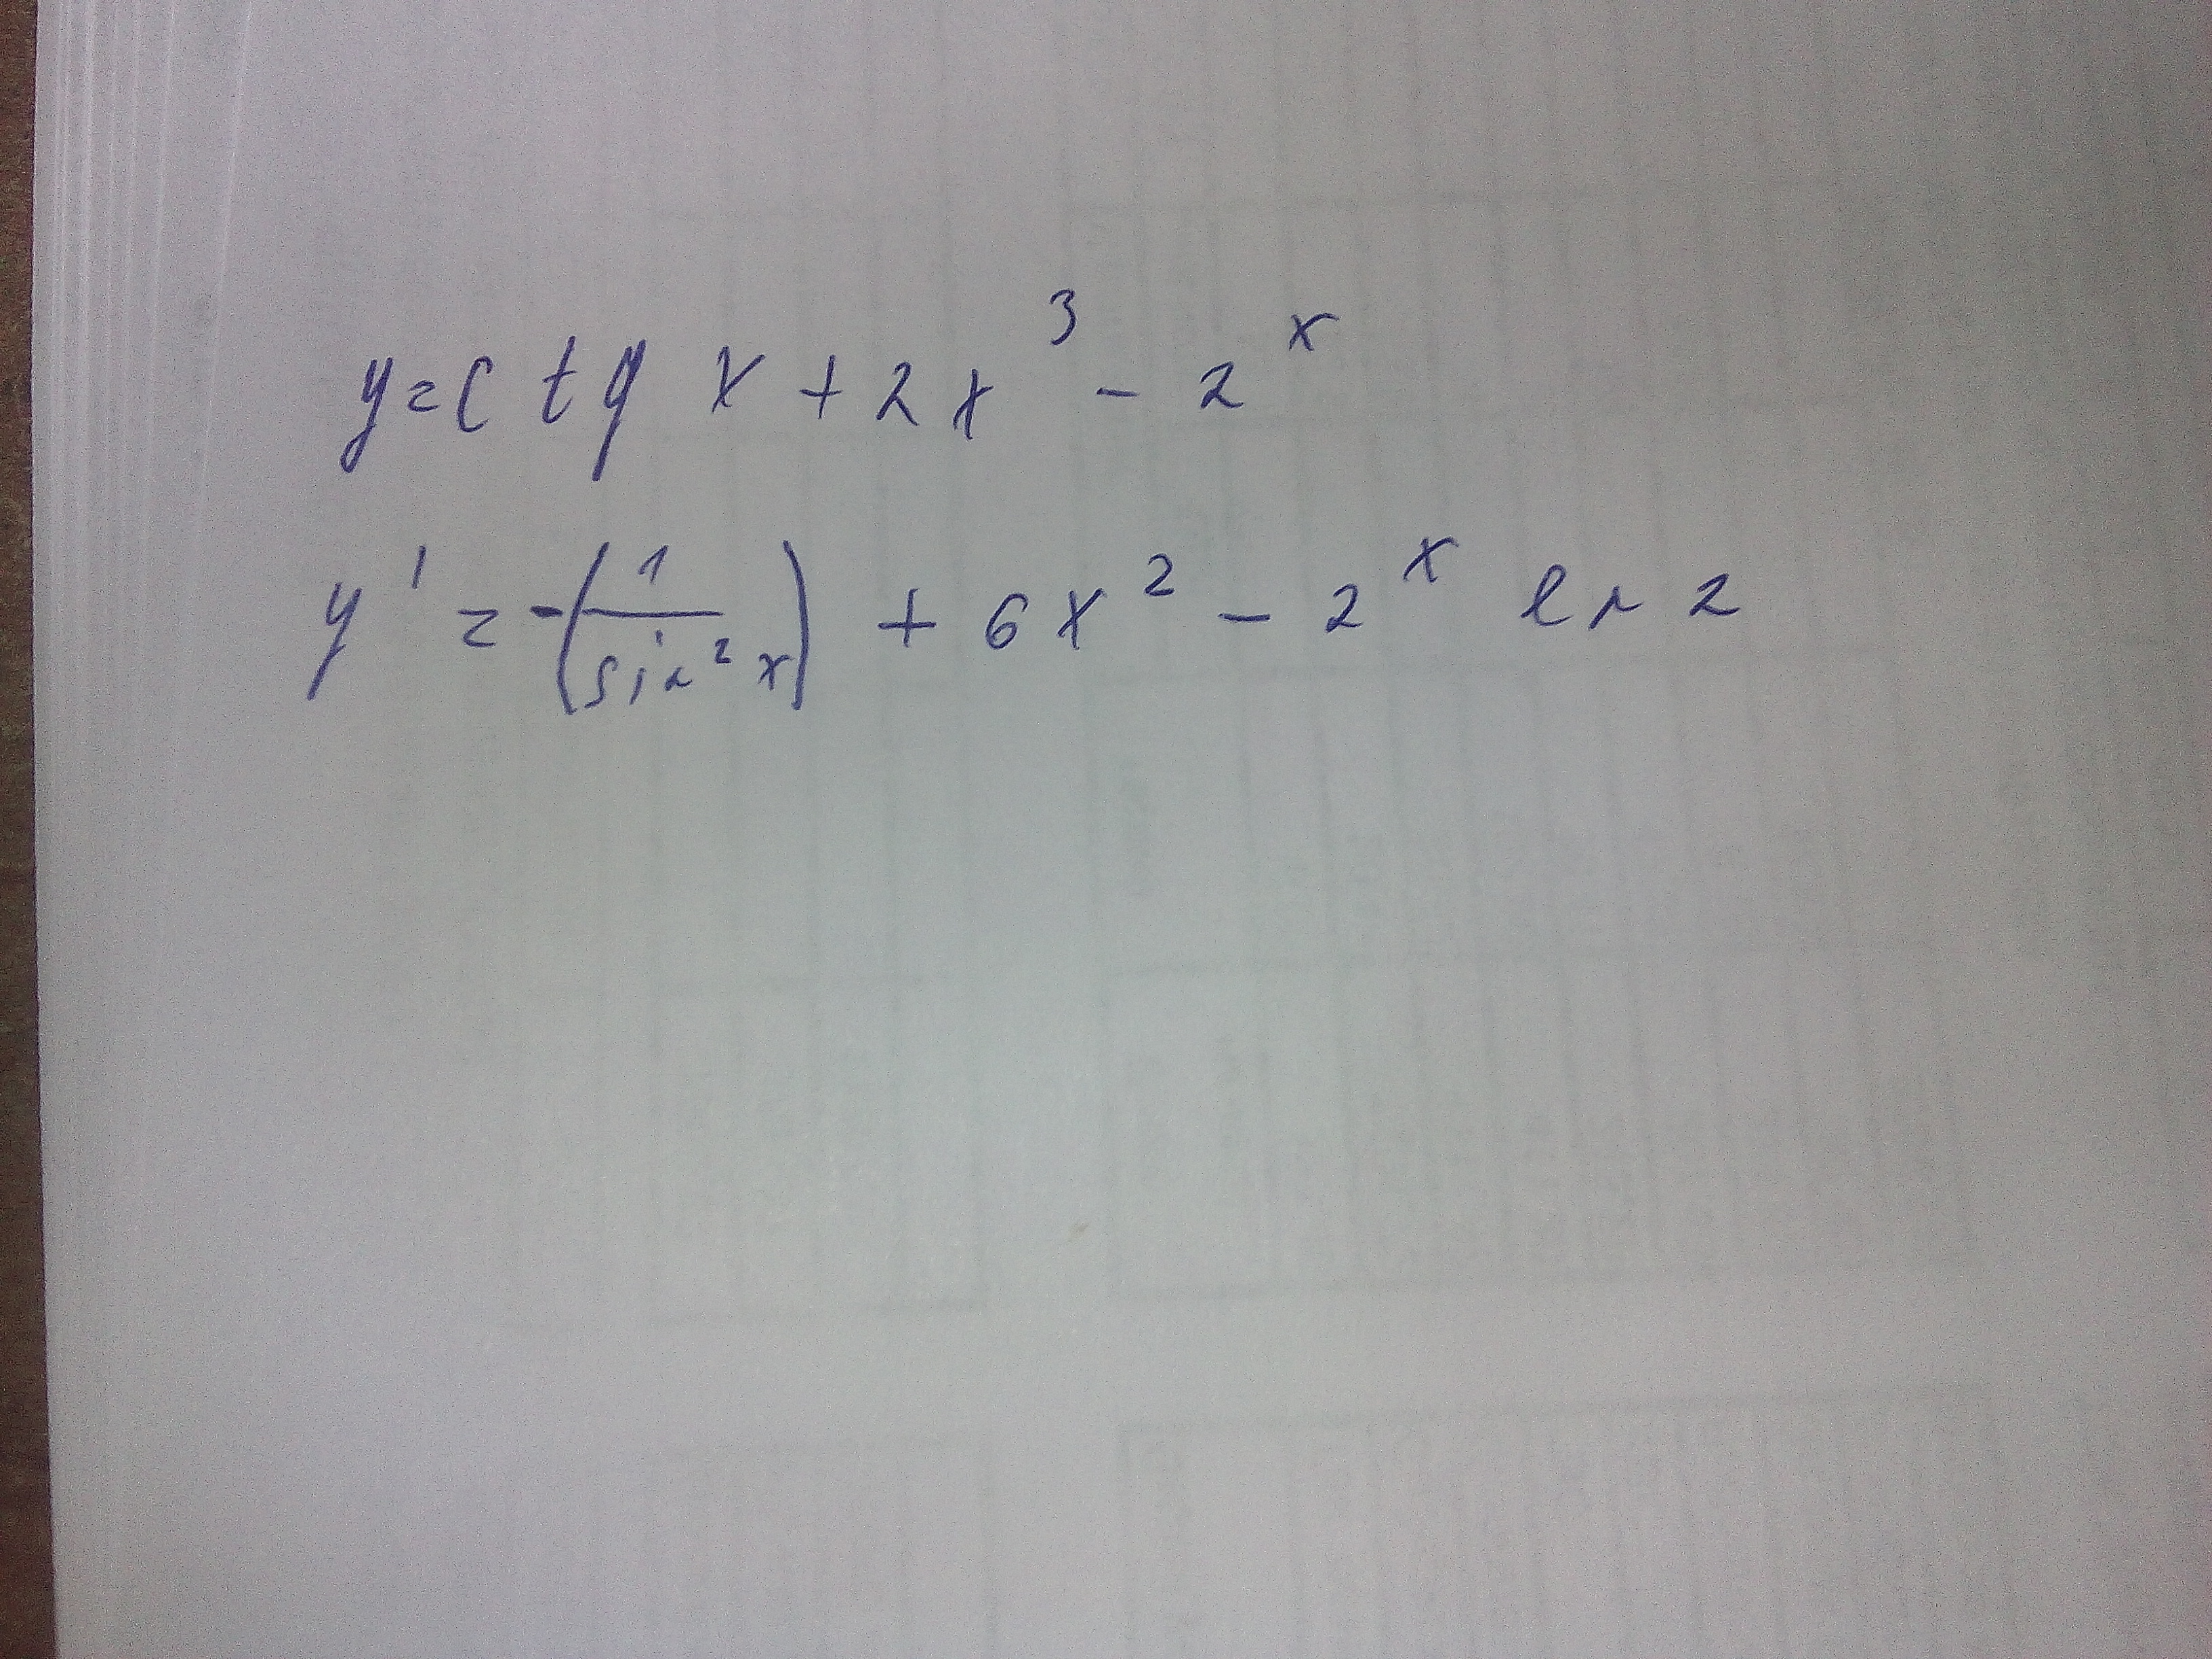 y = ctg x + 2x³ - 2ˣ
y' = -(1/sin² x) + 6x² - 2ˣ ln 2